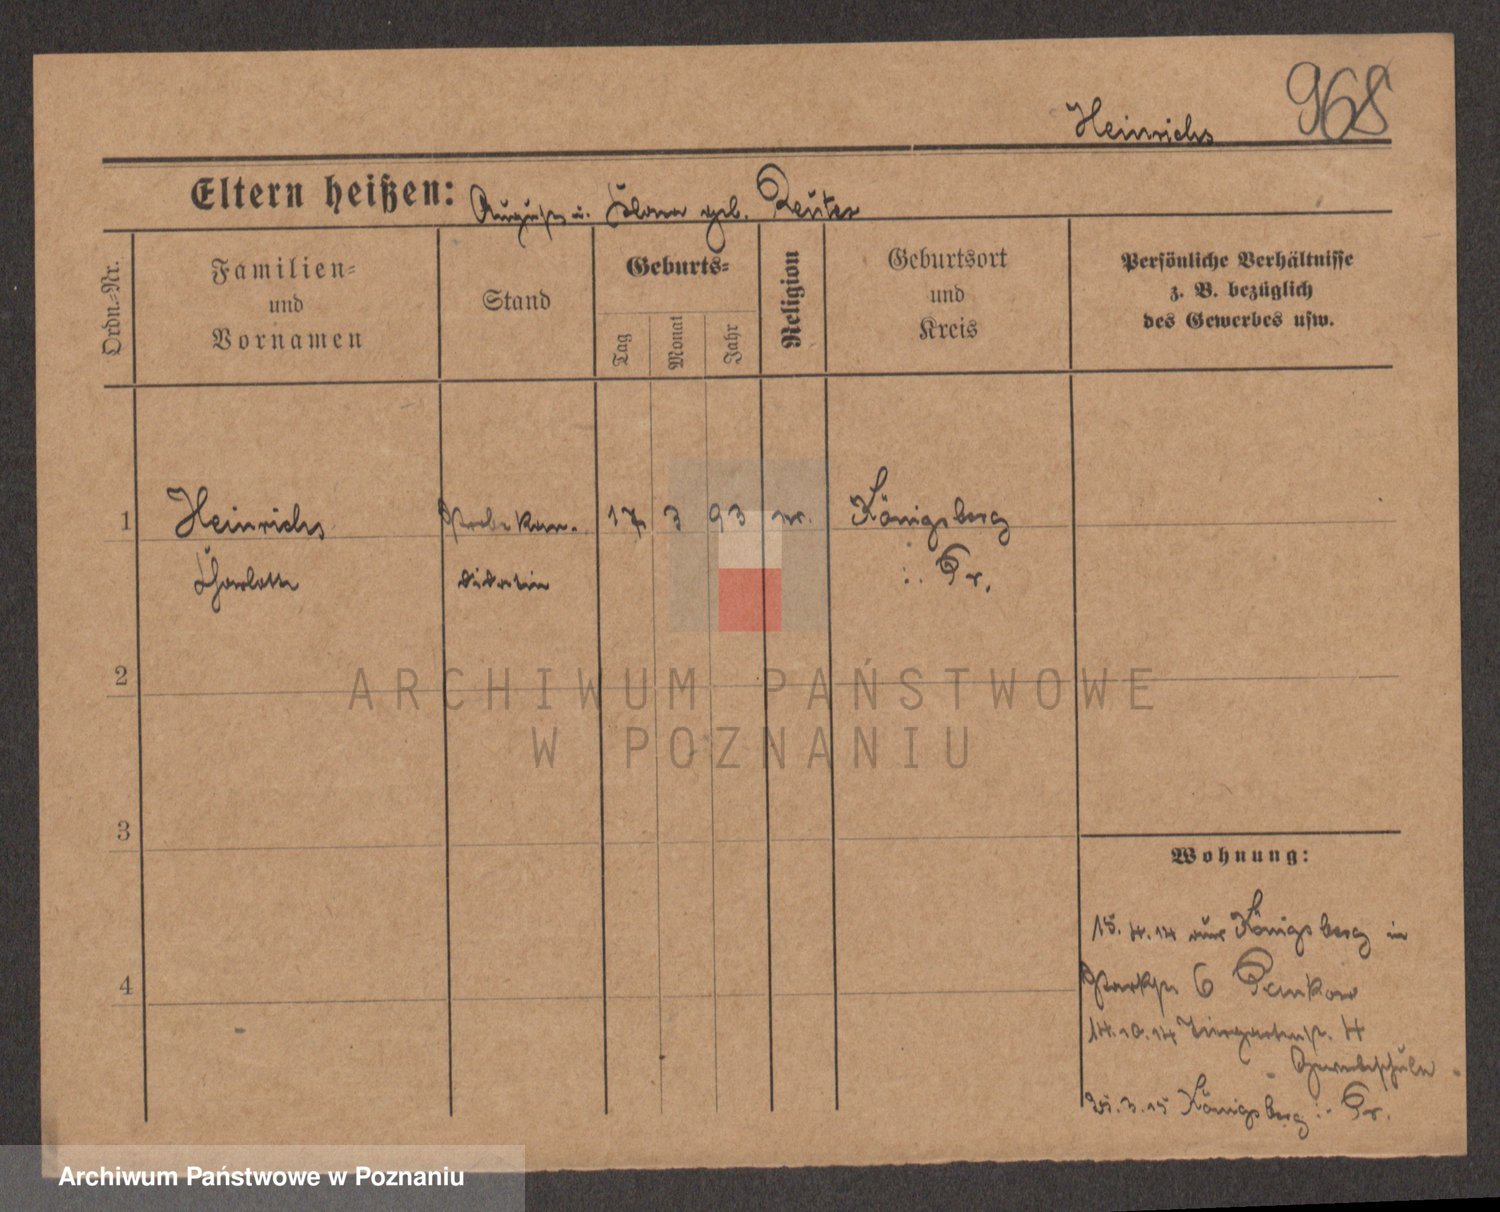 968
Heinrichs
Eltern heißen: August u. geb. Reuter
Ordn.-Nr.
Familien-
und
Vornamen
Stand
Geburts-
Tag
Monat
Jahr
Religion
Geburtsort
und
Kreis
Persönliche Verhältnisse
z. B. bezüglich
des Gewerbes usw.
1 Heinrichs 17 3 93 Königsberg
Charlotte i. Pr.
2
ARCHIWUM PAŃSTWOWE
W POZNANIU
3
Wohnung:
15.4.14 aus Königsberg in
Parkstr 6 Penkow
4
14.10.14 Tiergartenstr. 4
Gewerbeschule
3.15 Königsberg i. Pr.
Archiwum Państwowe w Poznaniu